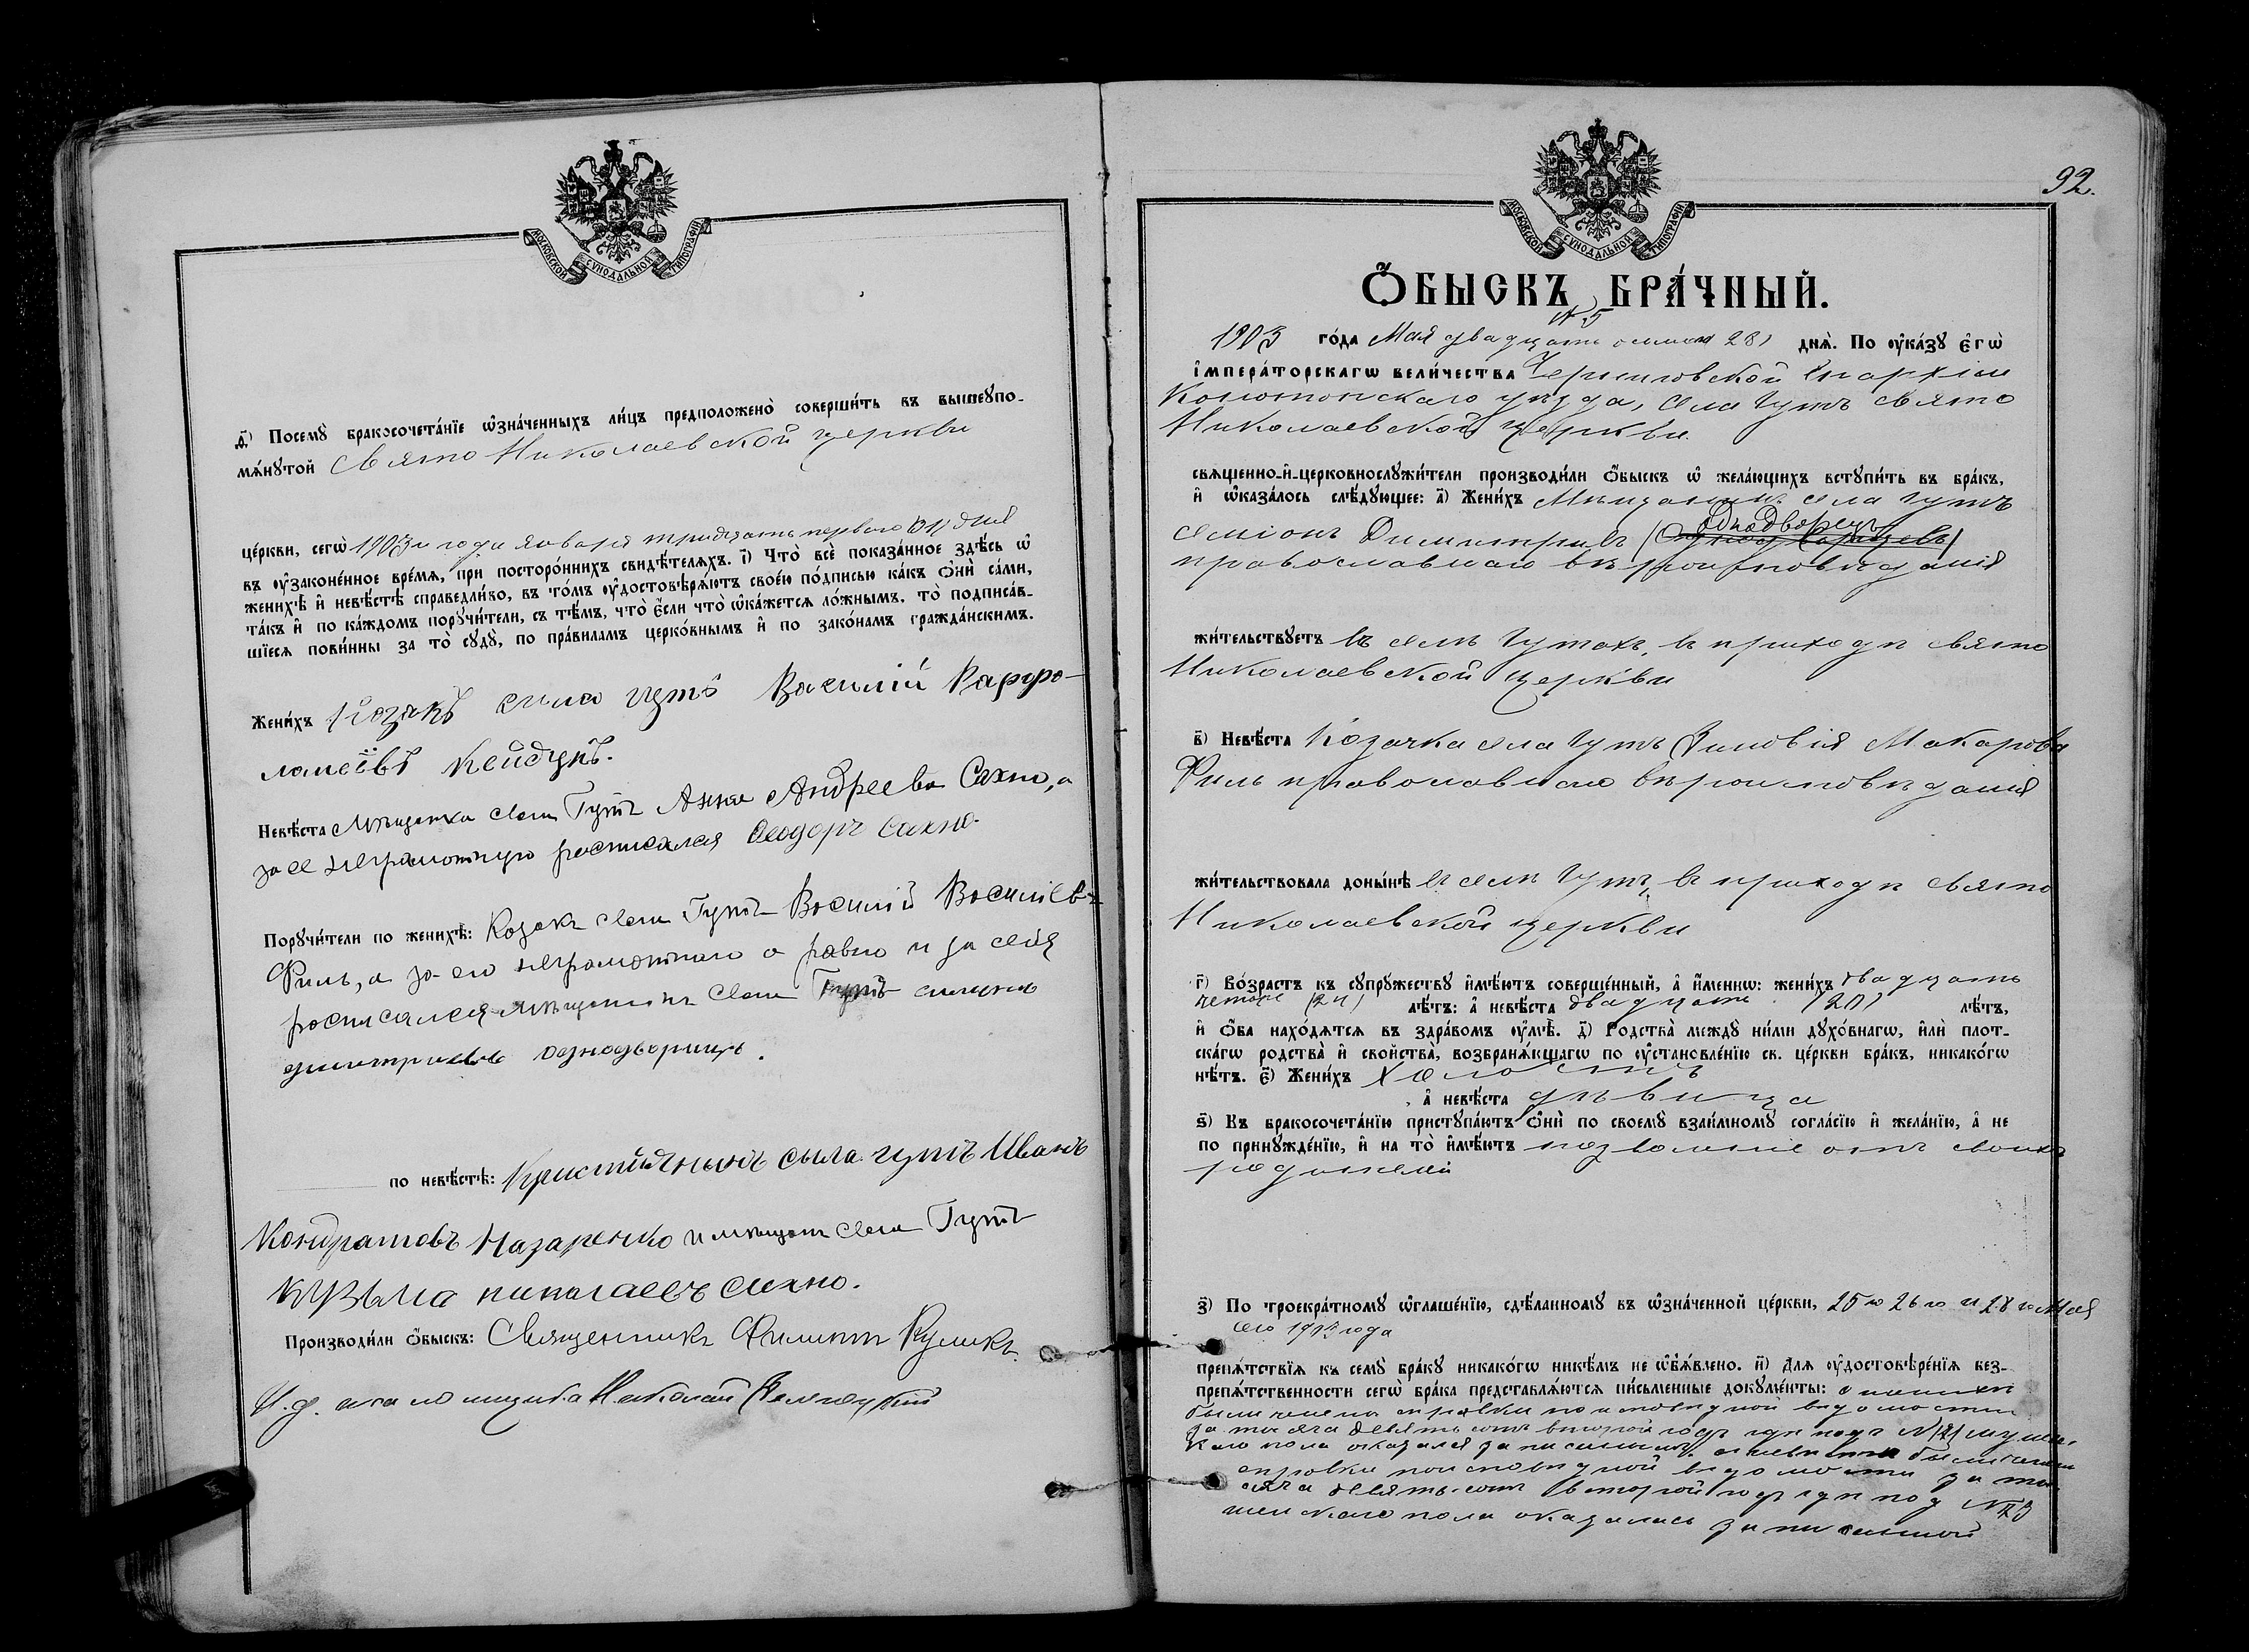 МОСКОВСКОЙ СѴНОДАЛЬНОЙ ТИПОГРАФІИ
д҃і) Посемꙋ̀ бракосочета́нїе ѡ҆зна́ченныхъ ли́цъ предположено̀ соверши́ть въ вышеꙋпо-
мѧ́нꙋтой Свято Николаевской церкви
це́ркви, сегѡ̀ 1903 года января тридцать перваго 31 дня
въ ᲂу҆законе́нное вре́мѧ, при посторо́ннихъ свидѣ́телѧхъ. і҃) Что̀ всѐ пока́занное здѣ́сь ѡ҆
женихѣ̀ и҆ невѣ́стѣ справедли́во, въ то́мъ ᲂу҆достовѣрѧ́ютъ свое́ю по́дписью ка́къ ѻ҆нѝ са́ми,
та́къ и҆ по ка́ждомъ порꙋчи́тели, съ тѣ́мъ, что̀ є҆́сли что̀ ѡ҆ка́жетсѧ ло́жнымъ, то̀ подписа́в-
шїесѧ пови́нны за то̀ сꙋдꙋ̀, по пра́виламъ церко́внымъ и҆ по зако́намъ гражда́нскимъ.
Жени́хъ Козакъ села Гутъ Василій Варфо-
ломеевъ Кейдунъ.
Невѣ́ста мѣщанка села Гутъ Анна Андреева Сахно, а
за ее неграмотную росписался Ѳеодоръ Сахно.
Порꙋчи́тели по женихѣ̀: Козакъ села Гутъ Василій Васильевъ
Филь, а за его неграмотнаго а равно и за себя
росписался мѣщанинъ села Гутъ
Димитріевъ Однодворецъ.
по невѣ́стѣ: села гутъ Иванъ
Кондратовъ Назаренко и мѣщан села Гутъ
Кузьма николаевъ сахно.
Производи́ли ѻ҆́быскъ: Священникъ Филиппъ Куликъ
И. д. псаломщика Николай
92.
МОСКОВСКОЙ СѴНОДАЛЬНОЙ ТИПОГРАФІИ
Ѻ҆́БЫСКЪ БРА́ЧНЫЙ.
№ 5
1903 го́да Мая двадцать осьмого 28 днѧ̀. По ᲂу҆ка́зꙋ є҆гѡ̀
і҆мпера́торскагѡ вели́чества Черниговской Епархіи
Конотопскаго уѣзда, села Гутъ Свято
Николаевской церкви
свѧщенно-и҆-церковнослꙋжи́тели производи́ли ѻ҆́быскъ ѡ҆ жела́ющихъ встꙋпи́ть въ бра́къ,
и҆ ѡ҆каза́лось слѣ́дꙋющее: а҃) Жени́хъ Мѣщанинъ села Гутъ
Симіонъ Димитріевъ Однодворецъ
православнаго вѣроисповѣданія
жи́тельствꙋетъ въ селѣ Гутахъ, въ приходѣ Свято
Николаевской церкви
в҃) Невѣ́ста Козачка села Гутъ Зиновія Макарова
Филь православнаго вѣроисповѣданія
жи́тельствовала доны́нѣ въ селѣ Гутъ, въ приходѣ Свято
Николаевской церкви
г҃) Во́зрастъ къ сꙋпрꙋ́жествꙋ и҆мѣ́ютъ соверше́нный, а҆ и҆́меннѡ: жени́хъ двадцать
четыре (24) лѣ́тъ: а҆ невѣ́ста двадцати (20) лѣ́тъ,
и҆ ѻ҆́ба нахо́дѧтсѧ въ здра́вомъ ᲂу҆мѣ̀. д҃) Родства̀ междꙋ̀ ни́ми дꙋхо́внагѡ, и҆лѝ плот-
ска́гѡ родства̀ и҆ свойства̀, возбранѧ́ющагѡ по ᲂу҆становле́нїю св. це́ркви бра́къ, никако́гѡ
нѣ́тъ. є҃) Жени́хъ холостъ
а҆ невѣ́ста дѣвица
ѕ҃) Къ бракосочета́нїю пристꙋпа́ютъ ѻ҆нѝ по своемꙋ̀ взаи́мномꙋ согла́сїю и҆ жела́нїю, а҆ не
по принꙋжде́нїю, и҆ на то̀ и҆мѣ́ютъ позволеніе отъ своихъ
родителей
з҃) По троекра́тномꙋ ѡ҆глаше́нїю, сдѣ́ланномꙋ въ ѡ҆зна́ченной це́ркви, 25 го 26 го и 28 го Мая
сего 1903 года
препѧ́тствїѧ къ семꙋ̀ бра́кꙋ никако́гѡ никѣ́мъ не ѡ҆б̾ѧ́влено. и҃) Длѧ ᲂу҆достовѣре́нїѧ без-
препѧ́тственности сегѡ̀ бра́ка представлѧ́ютсѧ пи́сьменные докꙋме́нты: о женихѣ
были чинены справки по исповѣдной вѣдомости
за тысяча девять сотъ второй годъ гдѣ подъ № муж
каго пола оказался записаннымъ, о невѣстѣ были чинены
справки по исповѣдной вѣдомости за ты
сяча девять сотъ второй годъ гдѣ подъ №
женскаго пола оказалась записанной